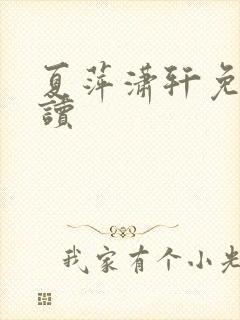 夏萍潇轩免
讀
我家有个小光